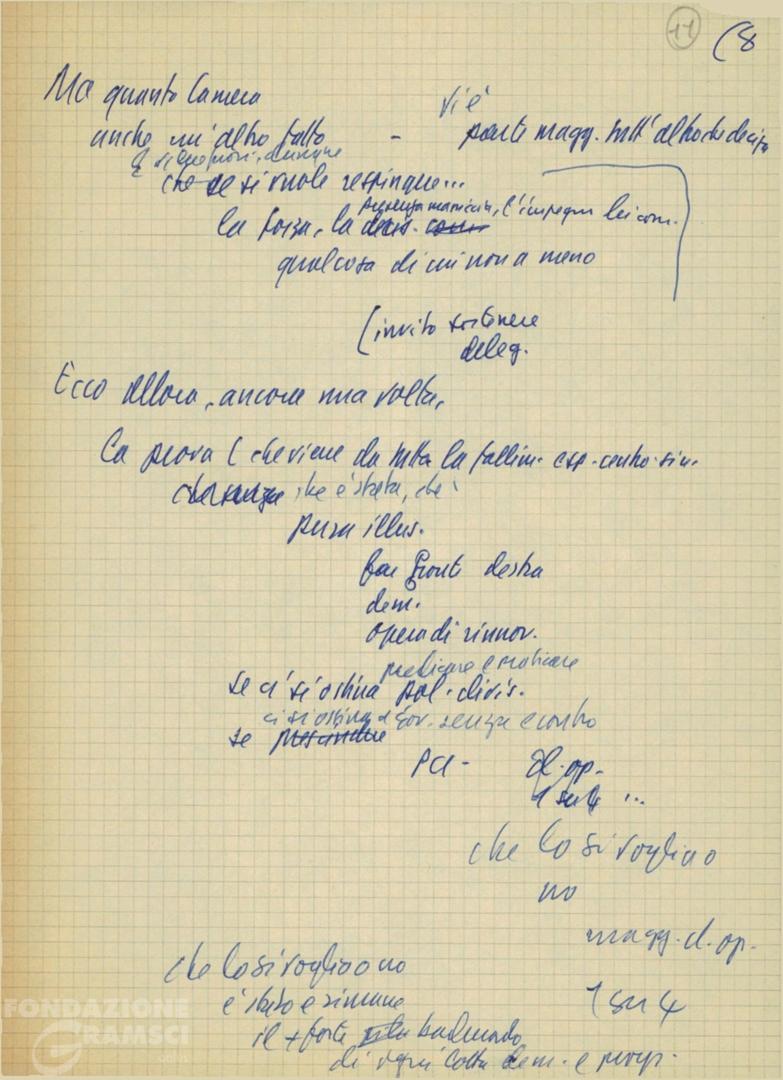 11 (8
Ma quanto Camera
vi è
anche un'altro fatto - parte magg. tutt'altro che decisa
che se si vuole respingere...
la forza, la l'impegno lavoratori
qualcosa di cui non a meno
(invito sostenere
deleg.
Ecco allora, ancora una volta,
la prova (che viene da tutta la fallim. esp. centro-sin.
che è stata, che
pura illus.
far fronte destra
dem.
opera di rinnov.
predicare e praticare
se ci si ostina pol. divis.
ci si ostina a gov. senza e contro
se
PCI - cl. op.
1 su 4 ...
che lo si voglia o
no
magg. cl. op.
che lo si voglia o no
1 su 4
è stato e rimane
il + forte baluardo
di ogni lotta dem. e progr.
FONDAZIONE
GRAMSCI